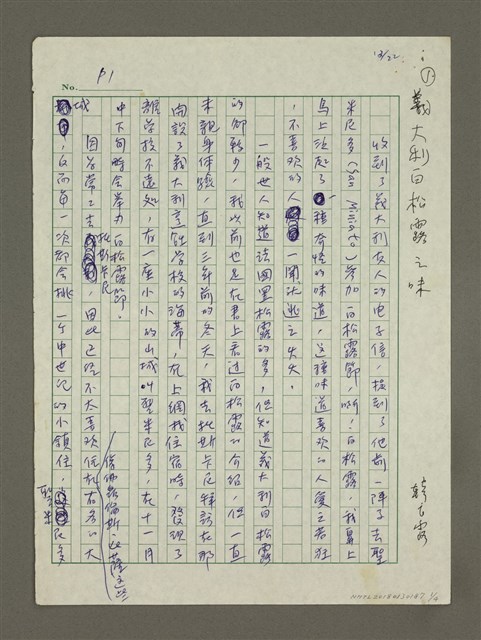 12/22
①
義大利白松露之味
韓良露
No. P1
收到了義大利友人的电子信,提到了他前一陣子去聖
米尼多(San Miniato)参加白松露節,啊!白松露,我鼻上
馬上泛起了一種奇怪的味道,这種味道喜欢的人愛之若狂
,不喜欢的人一聞就逃之夭夭。
一般世人知道法國黑松露的多,但知道義大利白松露
的卻較少,我以前也是在書上看过白松露的介紹,但一直
未親身体驗,直到三年前的冬天,我去托斯卡尼拜訪在那
開設了義大利烹飪学校的海蒂,在上網找住宿時,發現了
離学校不遠処,有一座小小的山城叫聖米尼多,在十一月
中下旬時会舉办白松露節。
因為常去托斯卡尼,因此已经不太喜欢住在有名的大
城
像佛羅倫斯、比薩这些
,反而每一次都会挑一个中世纪的小鎮住,聖米尼多
NMTL20180030187 1/4